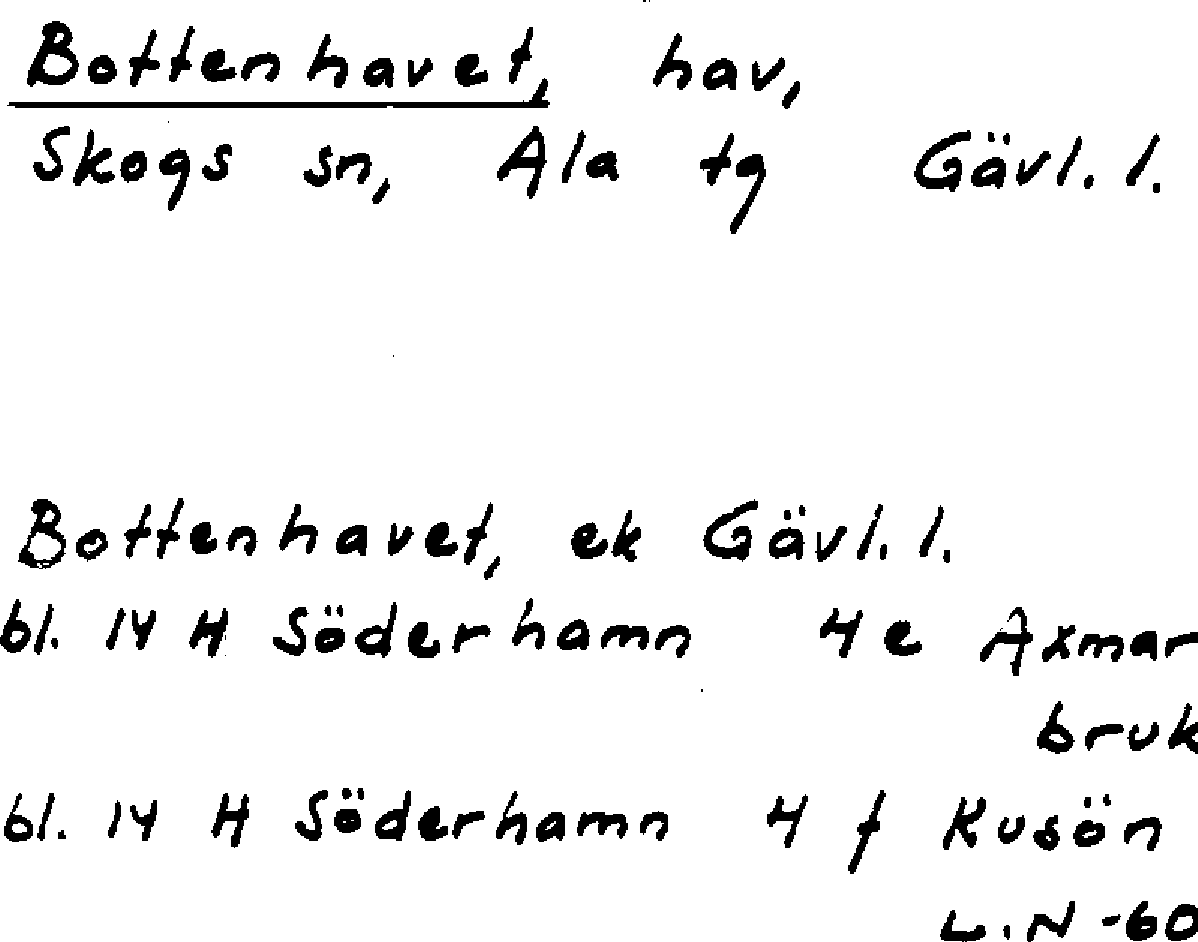 Bottenhavet, hav,
Skogs sn, Ala tg Gävl. l.
Bottenhavet, ek Gävl. l.
bl. 14 H Söderhamn 4 e Axmar
bruk
bl. 14 H Söderhamn 4 f Kusön
L.N -60